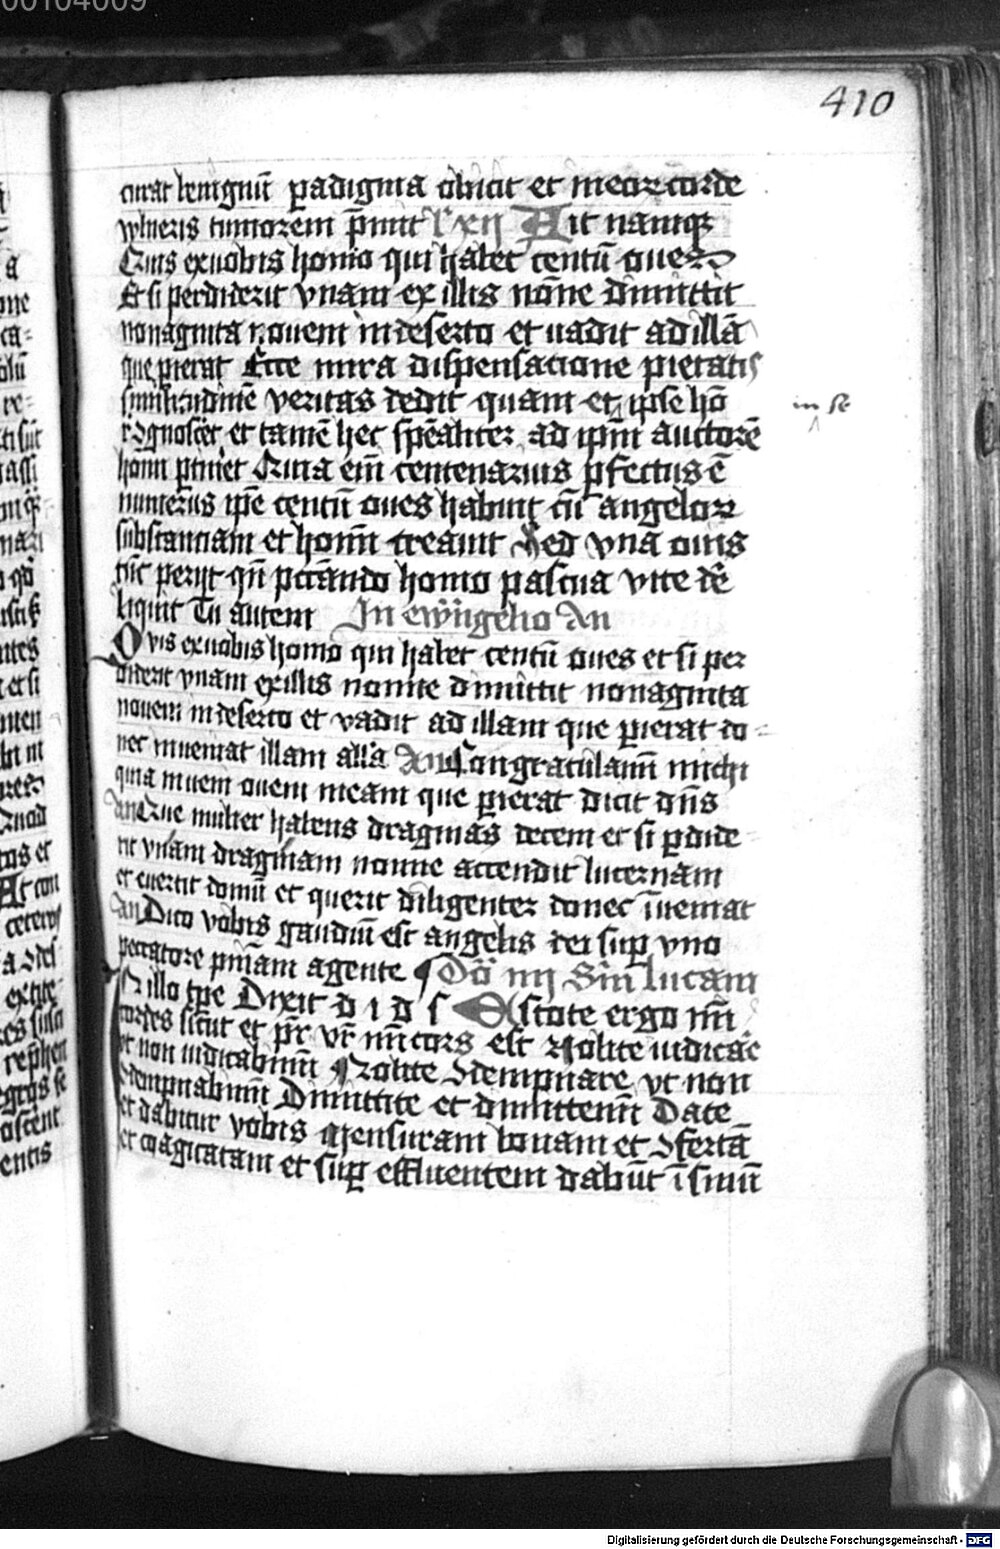 00104009
410
curat benignū ꝑadigma obicit et in eoꝝ corde
wlneris tumorem p̄mit lxij Ait namqꝫ
Quis ex uobis homo qui habet centū oues
Et si perdiderit vnam ex illis nōne dimittit
nonaginta nouem in deserto et uadit ad illā
que perierat Ecce mira dispensatione pietatis
similitudinē veritas dedit quam et ipse hō
in se
cognosceret et tamē hec sp̄ealiter ad ip̄m auctorē
hōim ꝑtinet Quia em̄ centenarius ꝑfectus ē
numerus ip̄e centū oues habuit cū angeloꝝ
substantiam et hoīm creauit Sed vna ouis
tūc perijt qn̄ peccando homo pascua vite de
liquit Tu autem In ewangelio An
Qvis ex uobis homo qui habet centū oues et si per
diderit vnam ex illis nonne dimittit nonaginta
nouem in deserto et vadit ad illam que perierat do
nec inueniat illam alla An Congratulamī michi
quia inueni ouem meam que perierat dicit dn̄s
An Que mulier habens dragmas decem et si perdide
rit vnam dragmam nonne accendit lucernam
et euertit domū et querit diligenter donec īueniat
An Dico vobis gaudiū est angelis dei suꝑ vno
peccatore pn̄iam agente Do iiij Sm̄ lucam
In illo tp̄e Dixit d i d s Estote ergo mī
cordes sicut et pr̄ vr̄ mīcors est Nolite iudicare
et non iudicabimī Nolite ꝯdempnare vt non
ꝯdempnabimī Dimittite et dimittemī Date
et dabitur vobis Mensuram bonam et ꝯfertā
et coagitatam et suꝑ effluentem dabūt ī sinū
Digitalisierung gefördert durch die Deutsche Forschungsgemeinschaft - DFG